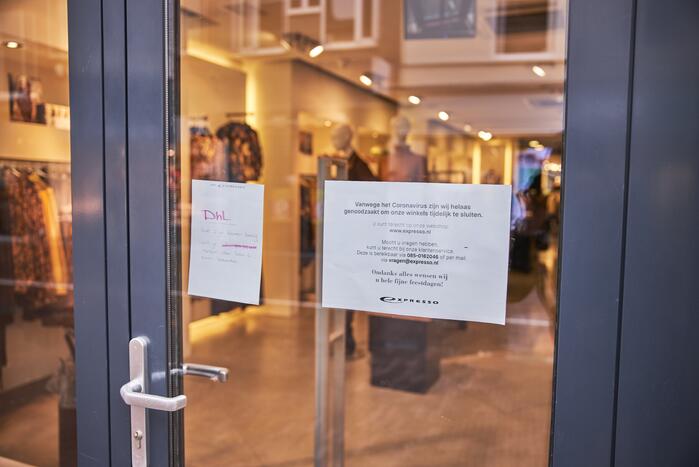 DhL
Vanwege het Coronavirus zijn wij helaas
genoodzaakt om onze winkels tijdelijk te sluiten.
U kunt terecht op onze webshop:
www.expresso.nl
Mocht u vragen hebben,
kunt u terecht bij onze klantenservice.
Deze is bereikbaar via 085-0162046 of per mail
via vragen@expresso.nl
Ondanks alles wensen wij
u hele fijne feestdagen!
expresso